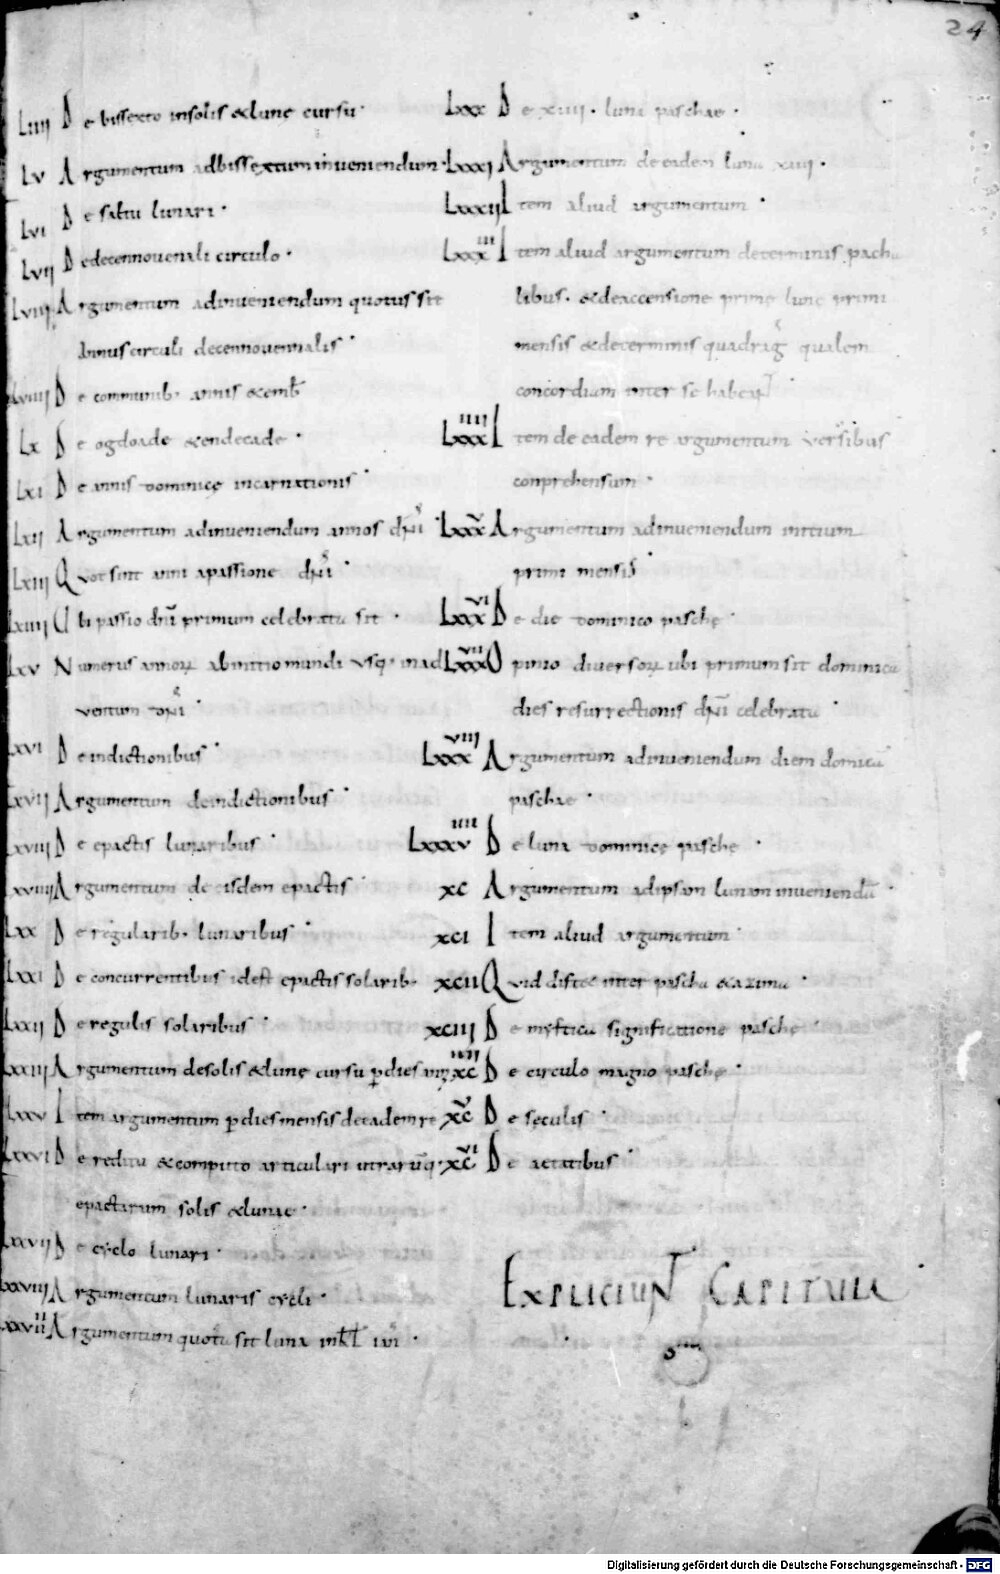 24
LIIII De bissexto in solis & lunę cursu.
LV Argumentum ad bissextum inveniendum.
LVI De saltu lunari.
LVII De decennovenali circulo.
LVIII Argumentum ad inveniendum quotus sit
Annus circuli decennovennalis.
LVIIII De communib. annis & emb̄
LX De ogdoade & endecade.
LXI De annis dominicę incarnationis
LXII Argumentum ad inveniendum annos dn̄i
LXIII Quot sint anni a passione dn̄i.
LXIIII Ubi passio dn̄i primum celebrata sit.
LXV Numerus annorꝝ ab initio mundi usq. in ad
ventum dn̄i.
LXVI De indictionibus
LXVII Argumentum de indictionibus.
LXVIII De epactis lunaribus.
LXVIIII Argumentum de eisdem epactis.
LXX De regularib. lunaribus.
LXXI De concurrentibus id est epactis solarib.
LXXII De regulis solaribus.
LXXIII Argumentum de solis & lunę cursu ꝑ dies
LXXV Item argumentum ꝑ dies mensis de eadem re
LXXVI De reditu & computo articulari utrarūq.
epactarum solis & lunae.
LXXVII De cyclo lunari.
LXXVIII Argumentum lunaris cycli.
LXXVIIII Argumentum quota sit luna in kl
LXXX De XIIII. luna paschae.
LXXXI Argumentum de eadem luna XIIII.
LXXXII Item aliud argumentum.
LXXXIII Item aliud argumentum de terminis pascha
libus. & de accensione primę lunę primi
mensis & de terminis quadrag qualem
concordiam inter se habent.
LXXXIIII Item de eadem re argumentum versibus
conprehensum.
LXXXV Argumentum ad inveniendum initium
primi mensis.
LXXXVI De die dominico paschę.
LXXXVII Opinio diversorꝝ ubi primum sit dominica
dies resurrectionis dn̄i celebrata.
LXXXVIII Argumentum ad inveniendum diem domicū
paschae.
LXXXVIIII De luna dominicę paschę.
XC Argumentum ad ipsam lunam inveniendā.
XCI Item aliud argumentum
XCII Quid distet inter pascha & azima.
XCIII De mystica significatione paschę.
XCIIII De circulo magno paschę.
XCV De sęculis.
XCVI De aetatibus.
EXPLICIUNT CAPITULA
Digitalisierung gefördert durch die Deutsche Forschungsgemeinschaft - DFG